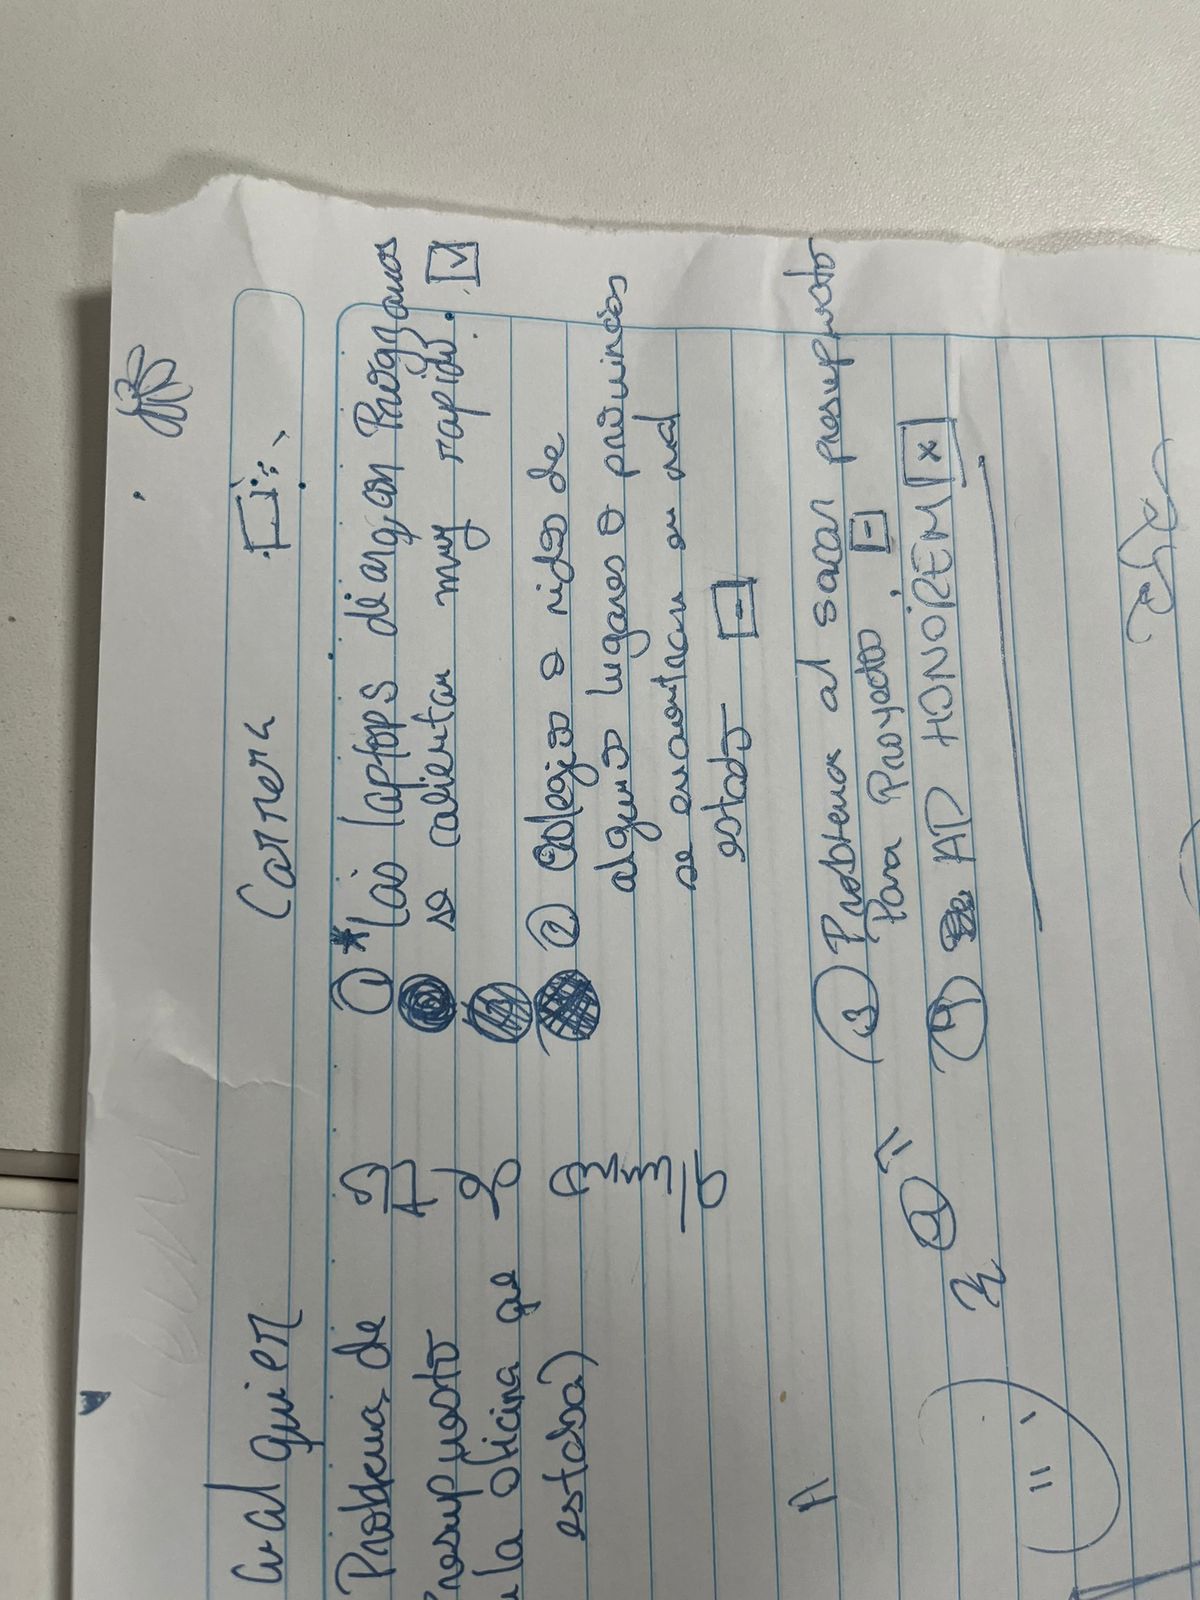 Cualquier Carrera
Problemas de
Presupuesto
la oficina que
estaba)
alumno de
① *Las laptops de arq, con Programas
se calientan muy rapido.
② Colegios o nidos de
algunos lugares o provincias
se encuentran en mal
estado
A
③ Problemas al sacar presupuesto
Para Proyectos.
④ AD HONOREM